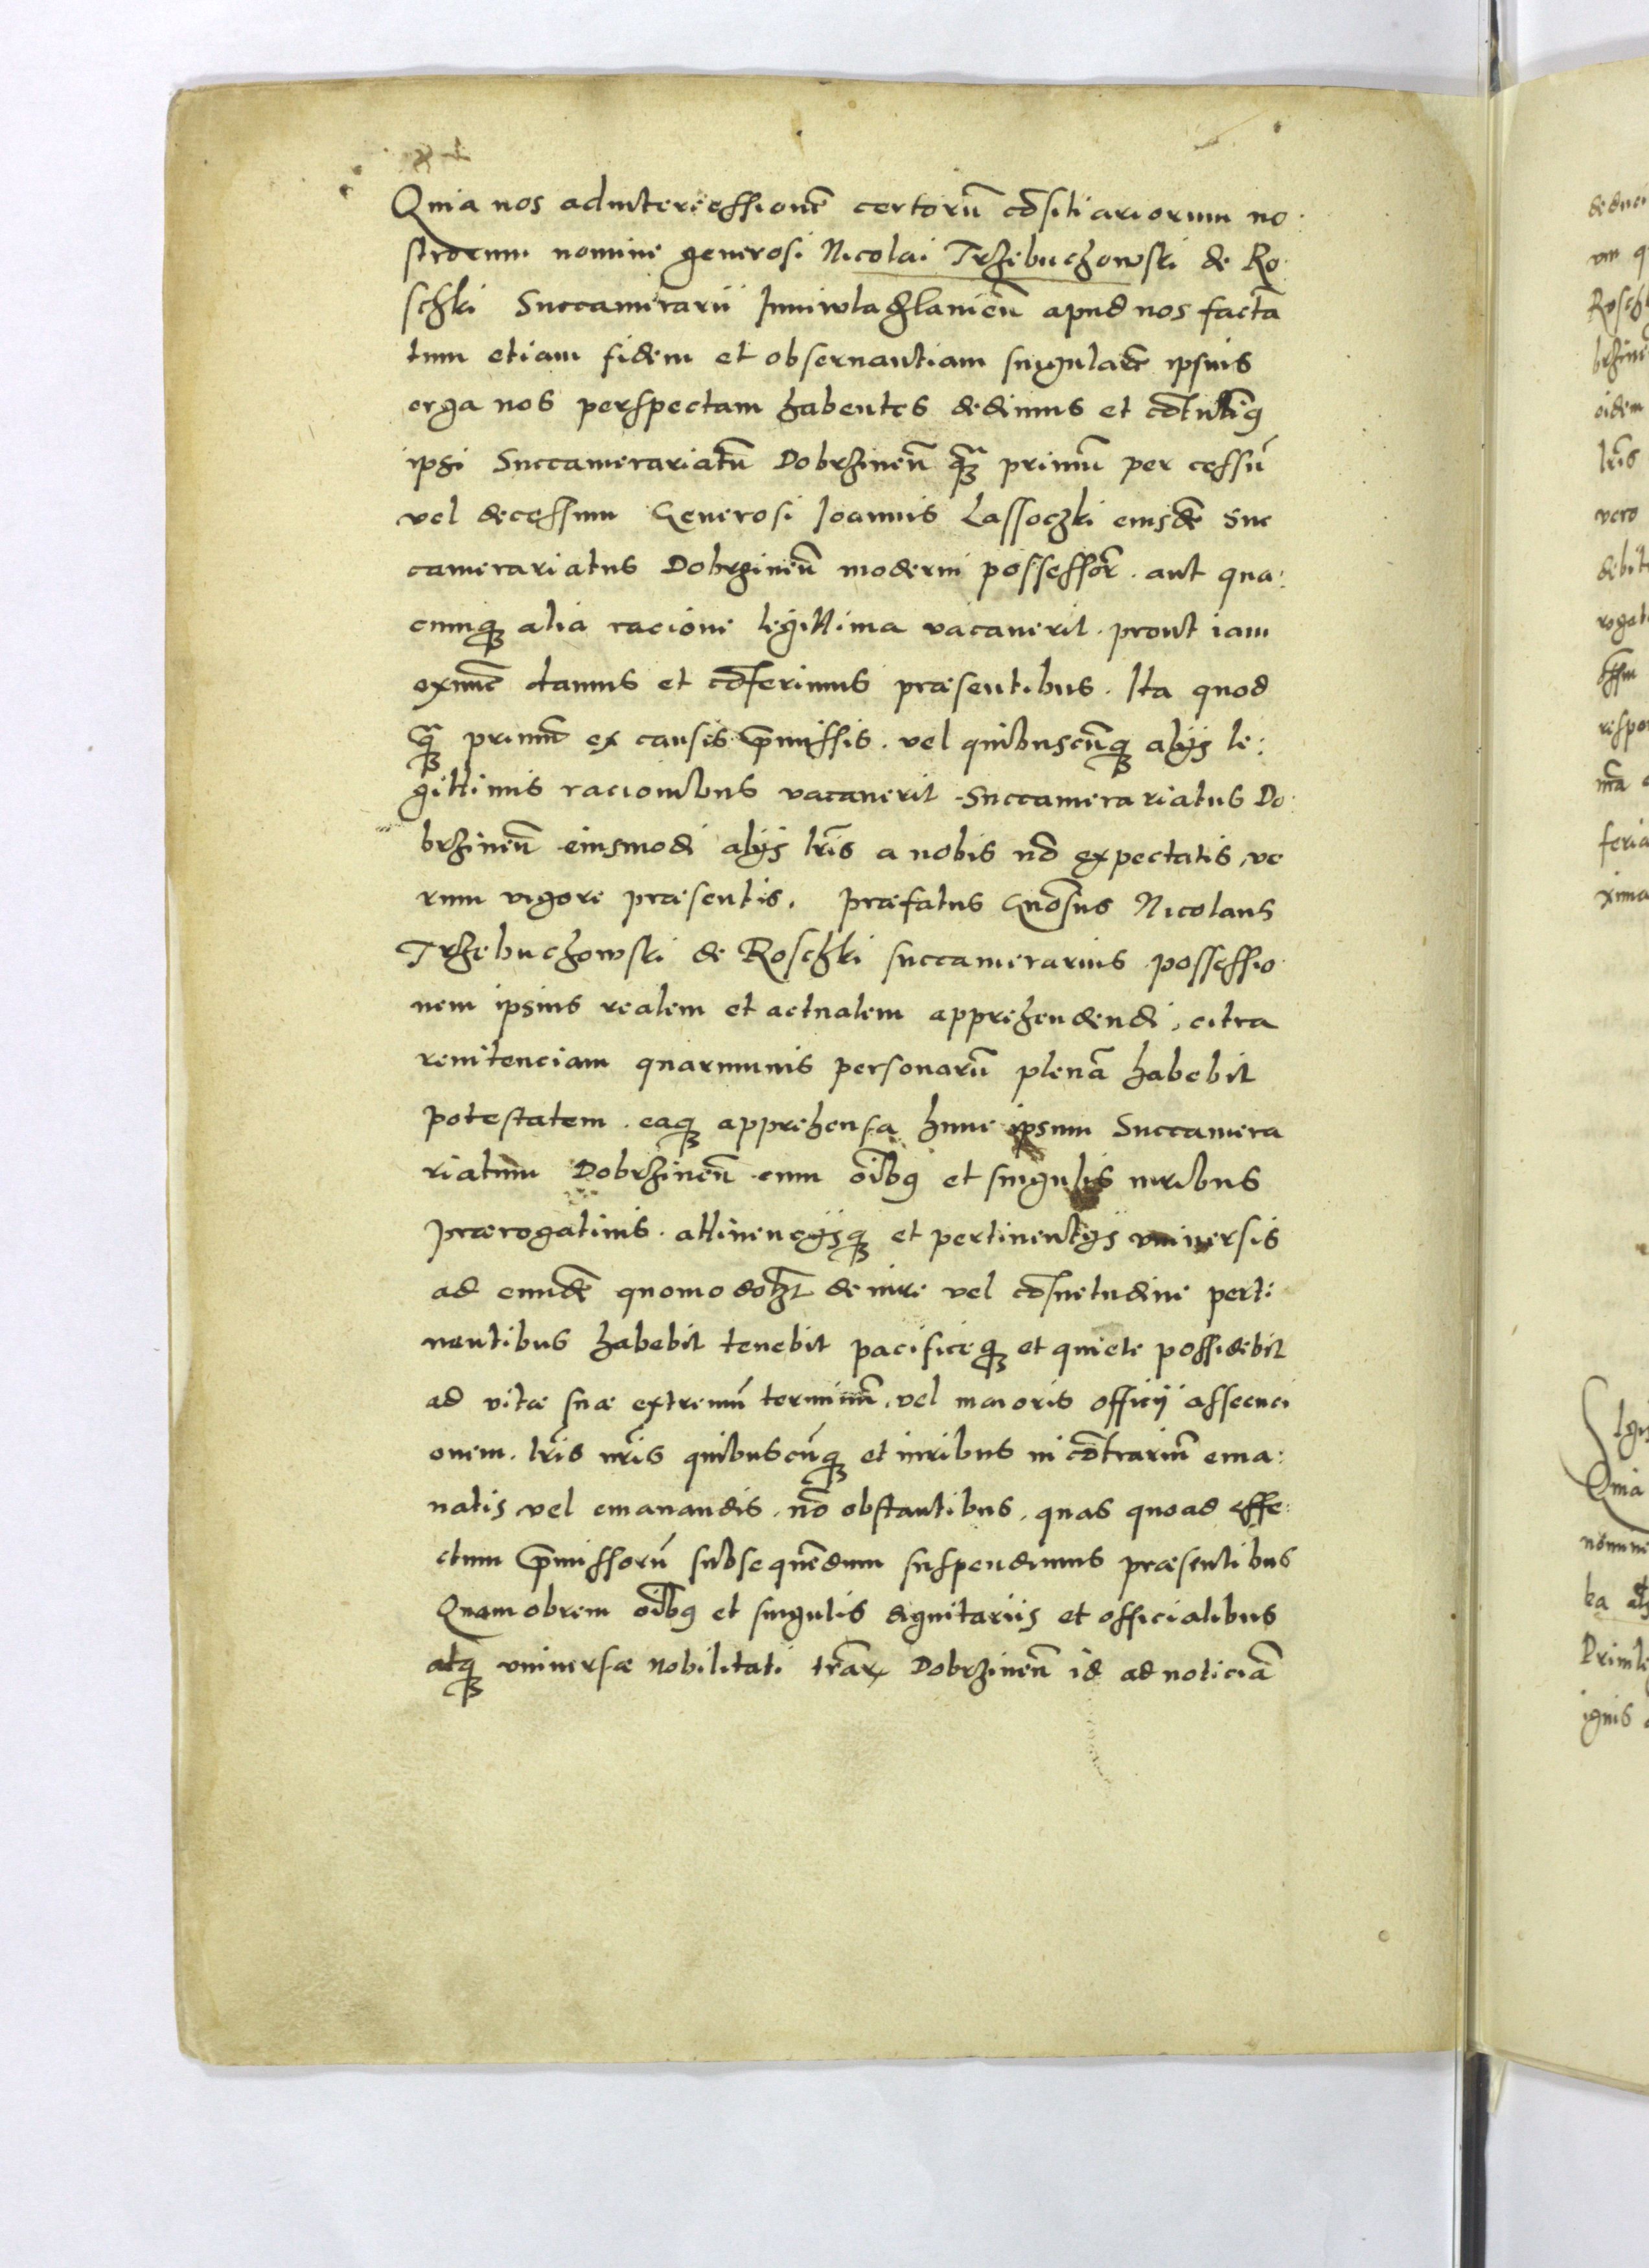 Quia nos ad intercessionē certorū cōsiliariorum no
strorum nomine generosi Nicolai Trzebuchowski de Ro
schki Succamerarii Iuniwladislauieñ apud nos factā
tum etiam fidem et obseruantiam singularē ipsius
erga nos perspectam habentes dedimus et cōtulimꝰ
ipsi Succamerariatū Dobrzineñ qꝫ̄ primū per cessū
vel decessum Generosi Ioannis Lassoczki eiusdē Suc
camerariatus Dobrzineñ moderni possessor̄. aut qua:
cunqꝫ alia racione legittima vacauerit. prout iam
exnūc damus et cōferimus præsentibus. Ita quod
qꝫ̄ primū ex causis p̄missis. vel quibuscūqꝫ alijs le:
gittimis racionibus vacauerit. Succamerariatus Do
brzineñ eiusmodi alijs lr̄is a nobis nō expectatis, ve
rum vigore præsentis. præfatus Gnōsus Nicolaus
Trzebuchowski de Roschki succamerarius possessio
nem ipsius realem et actualem apprehendendi, citra
renitenciam quarumuis personarū plenā habebit
potestatem. eaqꝫ apprehensa hunc ipsum Succamera
riatum Dobrzineñ cum oībꝰ et singulis iuribus
prærogatiuis. attinencijsqꝫ et pertinentijs vniuersis
ad eundē quomodolꝫt de iure vel cōsuetudine perti
nentibus habebit tenebit pacificeqꝫ et quiete possidebit
ad vitæ suæ extremū terminū. vel maioris officij assecuci
onem. lr̄is nr̄is quibuscūqꝫ et iuribus in cōtrariū ema:
natis vel emanandis. nō obstantibus. quas quoad effe:
ctum p̄missorū subsequēdum suspendimus præsentibus
Quamobrem oībꝰ et singulis dignitariis et officialibus
atqꝫ vniuersæ Nobilitati trr̄aꝝ Dobrzineñ id ad noticiā